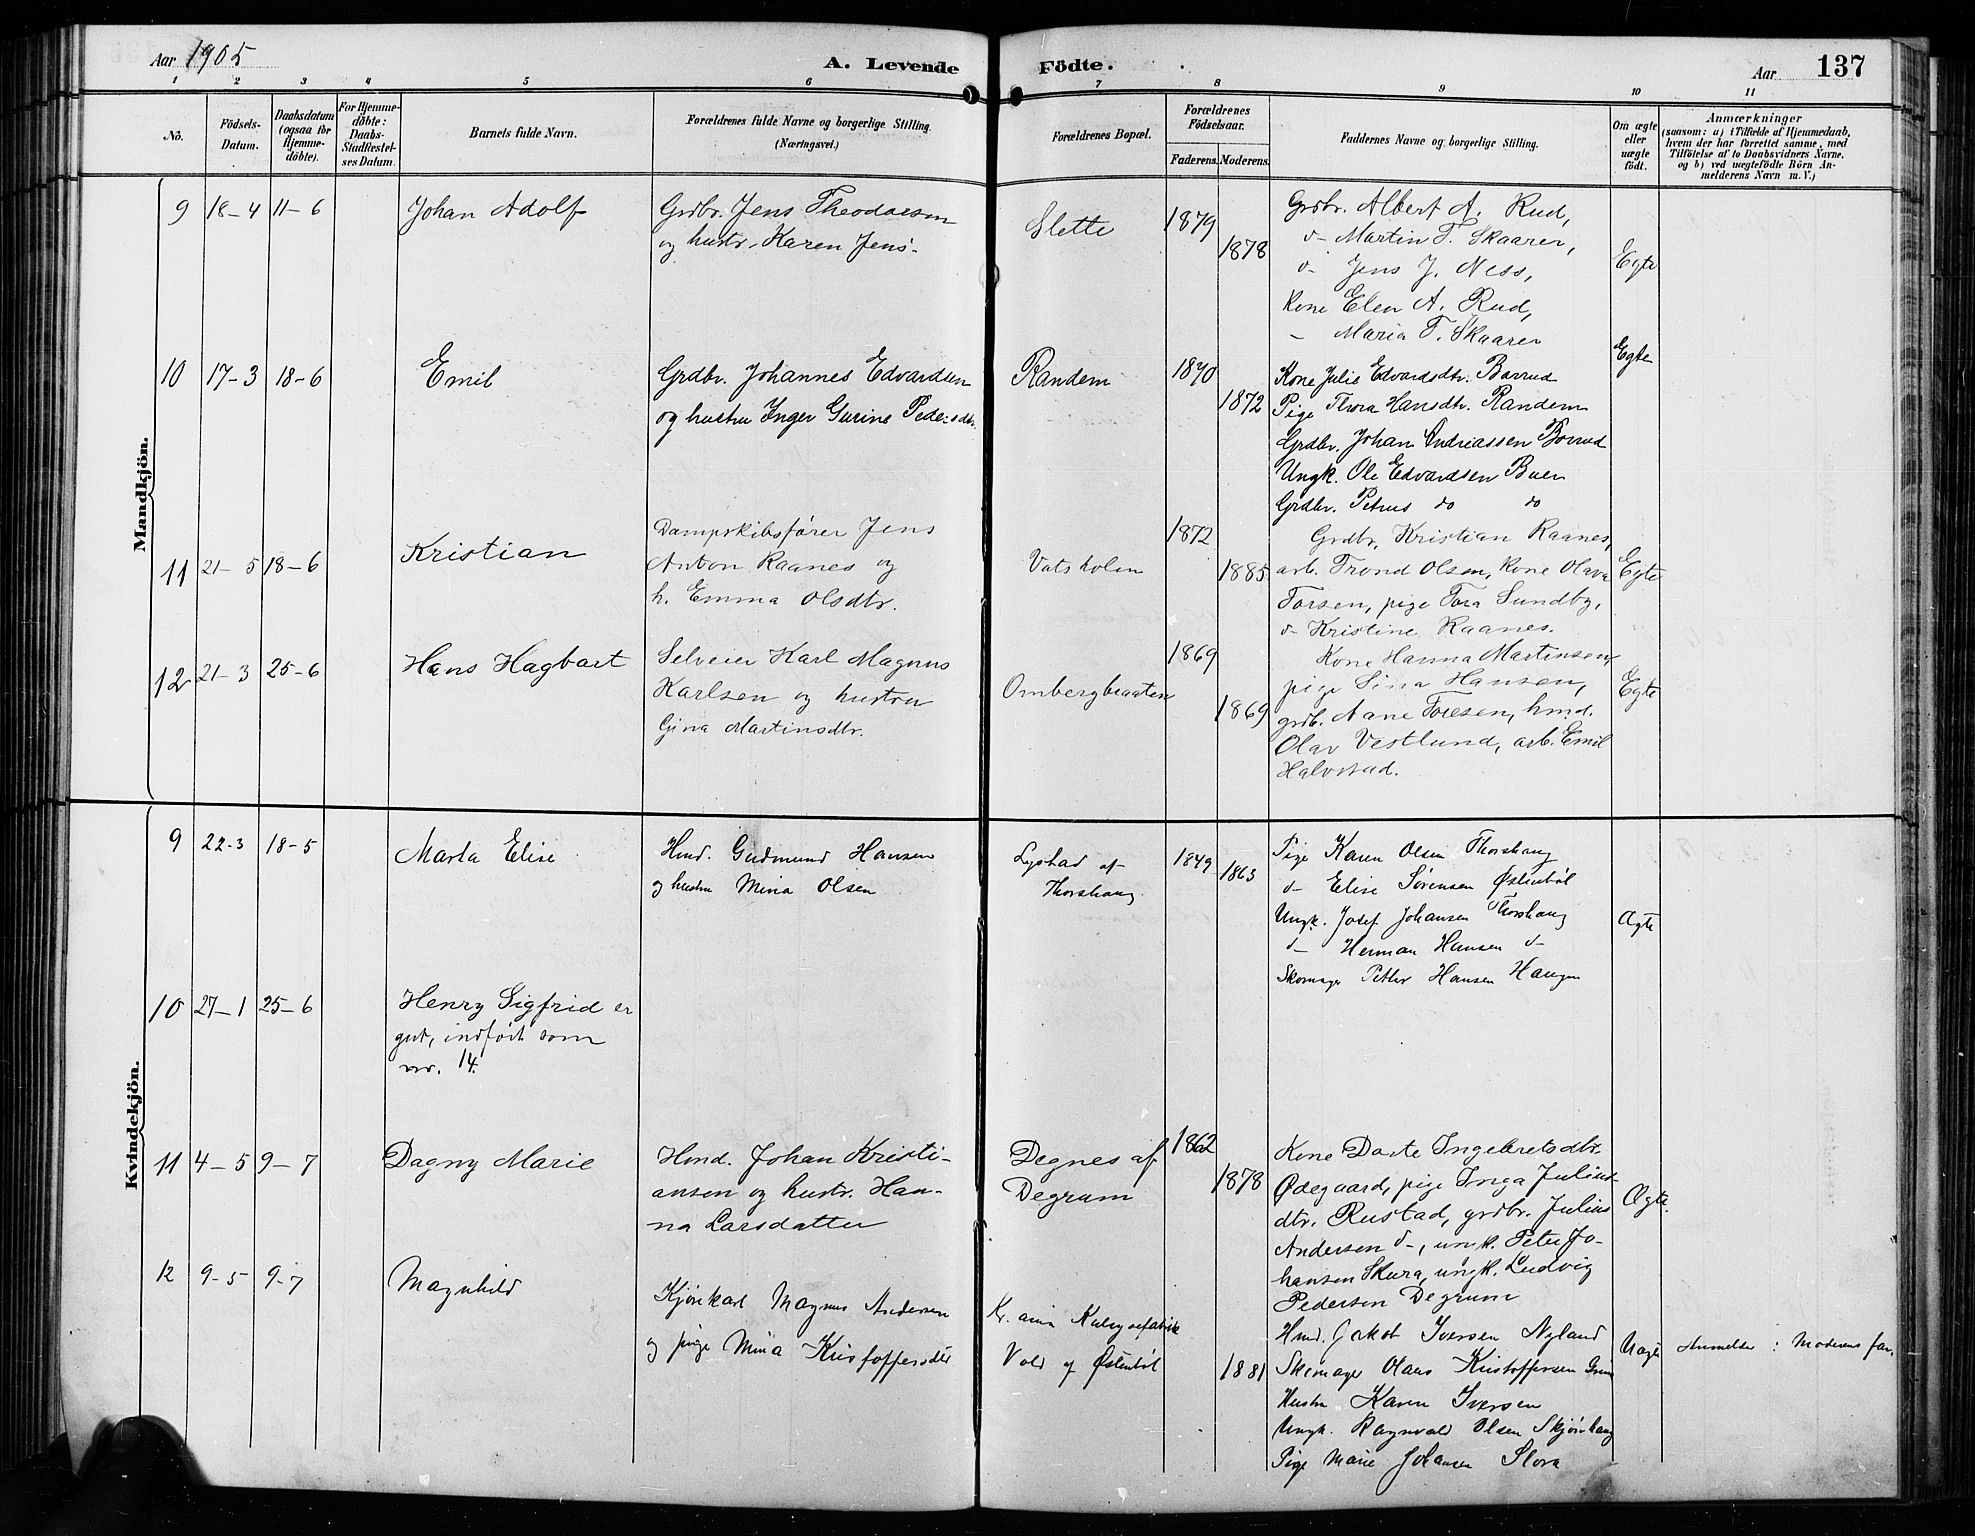 Aar 1905
A. Levende Födte.
Aar 137
1 2 3 4 5 6 7 8 9 10 11
No.
Födsels-Datum.
Daabsdatum (ogsaa for Hjemme-döbte).
For Hjemme-döbte: Daabs-Stadfæstel-ses Datum.
Barnets fulde Navn.
Forældrenes fulde Navne og borgerlige Stilling. (Næringsvei.)
Forældrenes Bopæl.
Forældrenes Födselsaar.
Faderens. Moderens.
Faddernes Navne og borgerlige Stilling.
Om ægte eller uægte födt.
Anmærkninger
(saasom: a) i Tilfælde af Hjemmedaab,
hvem der har forrettet samme, med
Tilföielse af to Daabsvidners Navne,
og b) ved uægtefödte Börn An-
melderens Navn m. V.)
Mandkjön.
9 18-4 11-6 Johan Adolf
Grdbr. Jens Theodorsen
og hustr. Karen Jens.
Slette
1879
1878
Grdbr. Albert A. Rud,
d- Martin T. Skaarer,
d- Jens J. Ness,
Kone Elen A. Rud,
- Maria T. Skaarer
Egte
10 17-3 18-6 Emil
Grdbr. Johannes Edvardsen
og hustru Inger Gurine Pedersdtr.
Randem
1870
1872
Kone Julie Edvardsdtr. Borrud
Pige Thora Hansdtr. Randem
Grdbr. Johan Andreassen Borrud
Ungk. Ole Edvardsen Buer
Grdbr. Petrus do do
Egte
11 21-5 18-6 Kristian
Dampskibsfører Jens
Anton Raanes og
h. Emma Olsdtr.
Vatsholen
1872
1885
Grdbr. Kristian Raanes,
arb. Trond Olsen, Kone Olava
Torsen, pige Tora Sundby,
d- Kristine Raanes.
Egte
12 21-3 25-6 Hans Hagbart
Selveier Karl Magnus
Karlsen og hustru
Gina Martinsdtr.
Ombergbraaten
1869
1869
Kone Hanna Martinsen,
pige Lina Hansen,
grdb. Aane Toresen, hmd.
Olav Vestlund, arb. Emil
Halvstad.
Egte
Kvindekjön.
9 22-3 18-5 Marta Elise
Hmd. Gudmund Hansen
og hustru Mina Olsen
Lystad af
Thorshaug
1849
1863
Pige Karen Olsen Thorshaug
d- Elise Sørensen Østenböl
Ungk. Josef Johansen Thorshaug
d- Herman Hansen d-
Skomager Petter Hansen Haugen
Ægte
10 27-1 25-6 Henry Sigfrid er
gut, indført som
nr. 14.
11 4-5 9-7 Dagny Marie
Hmd. Johan Kristi-
ansen og hustr. Han-
na Larsdatter
Degnes af
Degrum
1862
1878
Kone Dorte Ingebretsdtr.
Ødegaard, pige Inga Julius-
dtr. Rustad, grdbr. Julius
Andersen d-, ungk. Peter Jo-
hansen Skura, ungk. Ludvig
Pedersen Degrum
Ægte.
12 9-5 9-7 Magnhild
Kjørekarl Magnus Andersen
og pige Mina Kristoffersdtr
Kr.ania
Vold af Østenböl
1881
Hmd. Jakob Iversen Nyland
Skomager Olaus Kristoffersen
Hustru Karen Iversen
Ungk. Ragnvald Olsen Skjønhaug
Pige Marie Johansen Slora
Uægte
Anmelder: Moderens far.